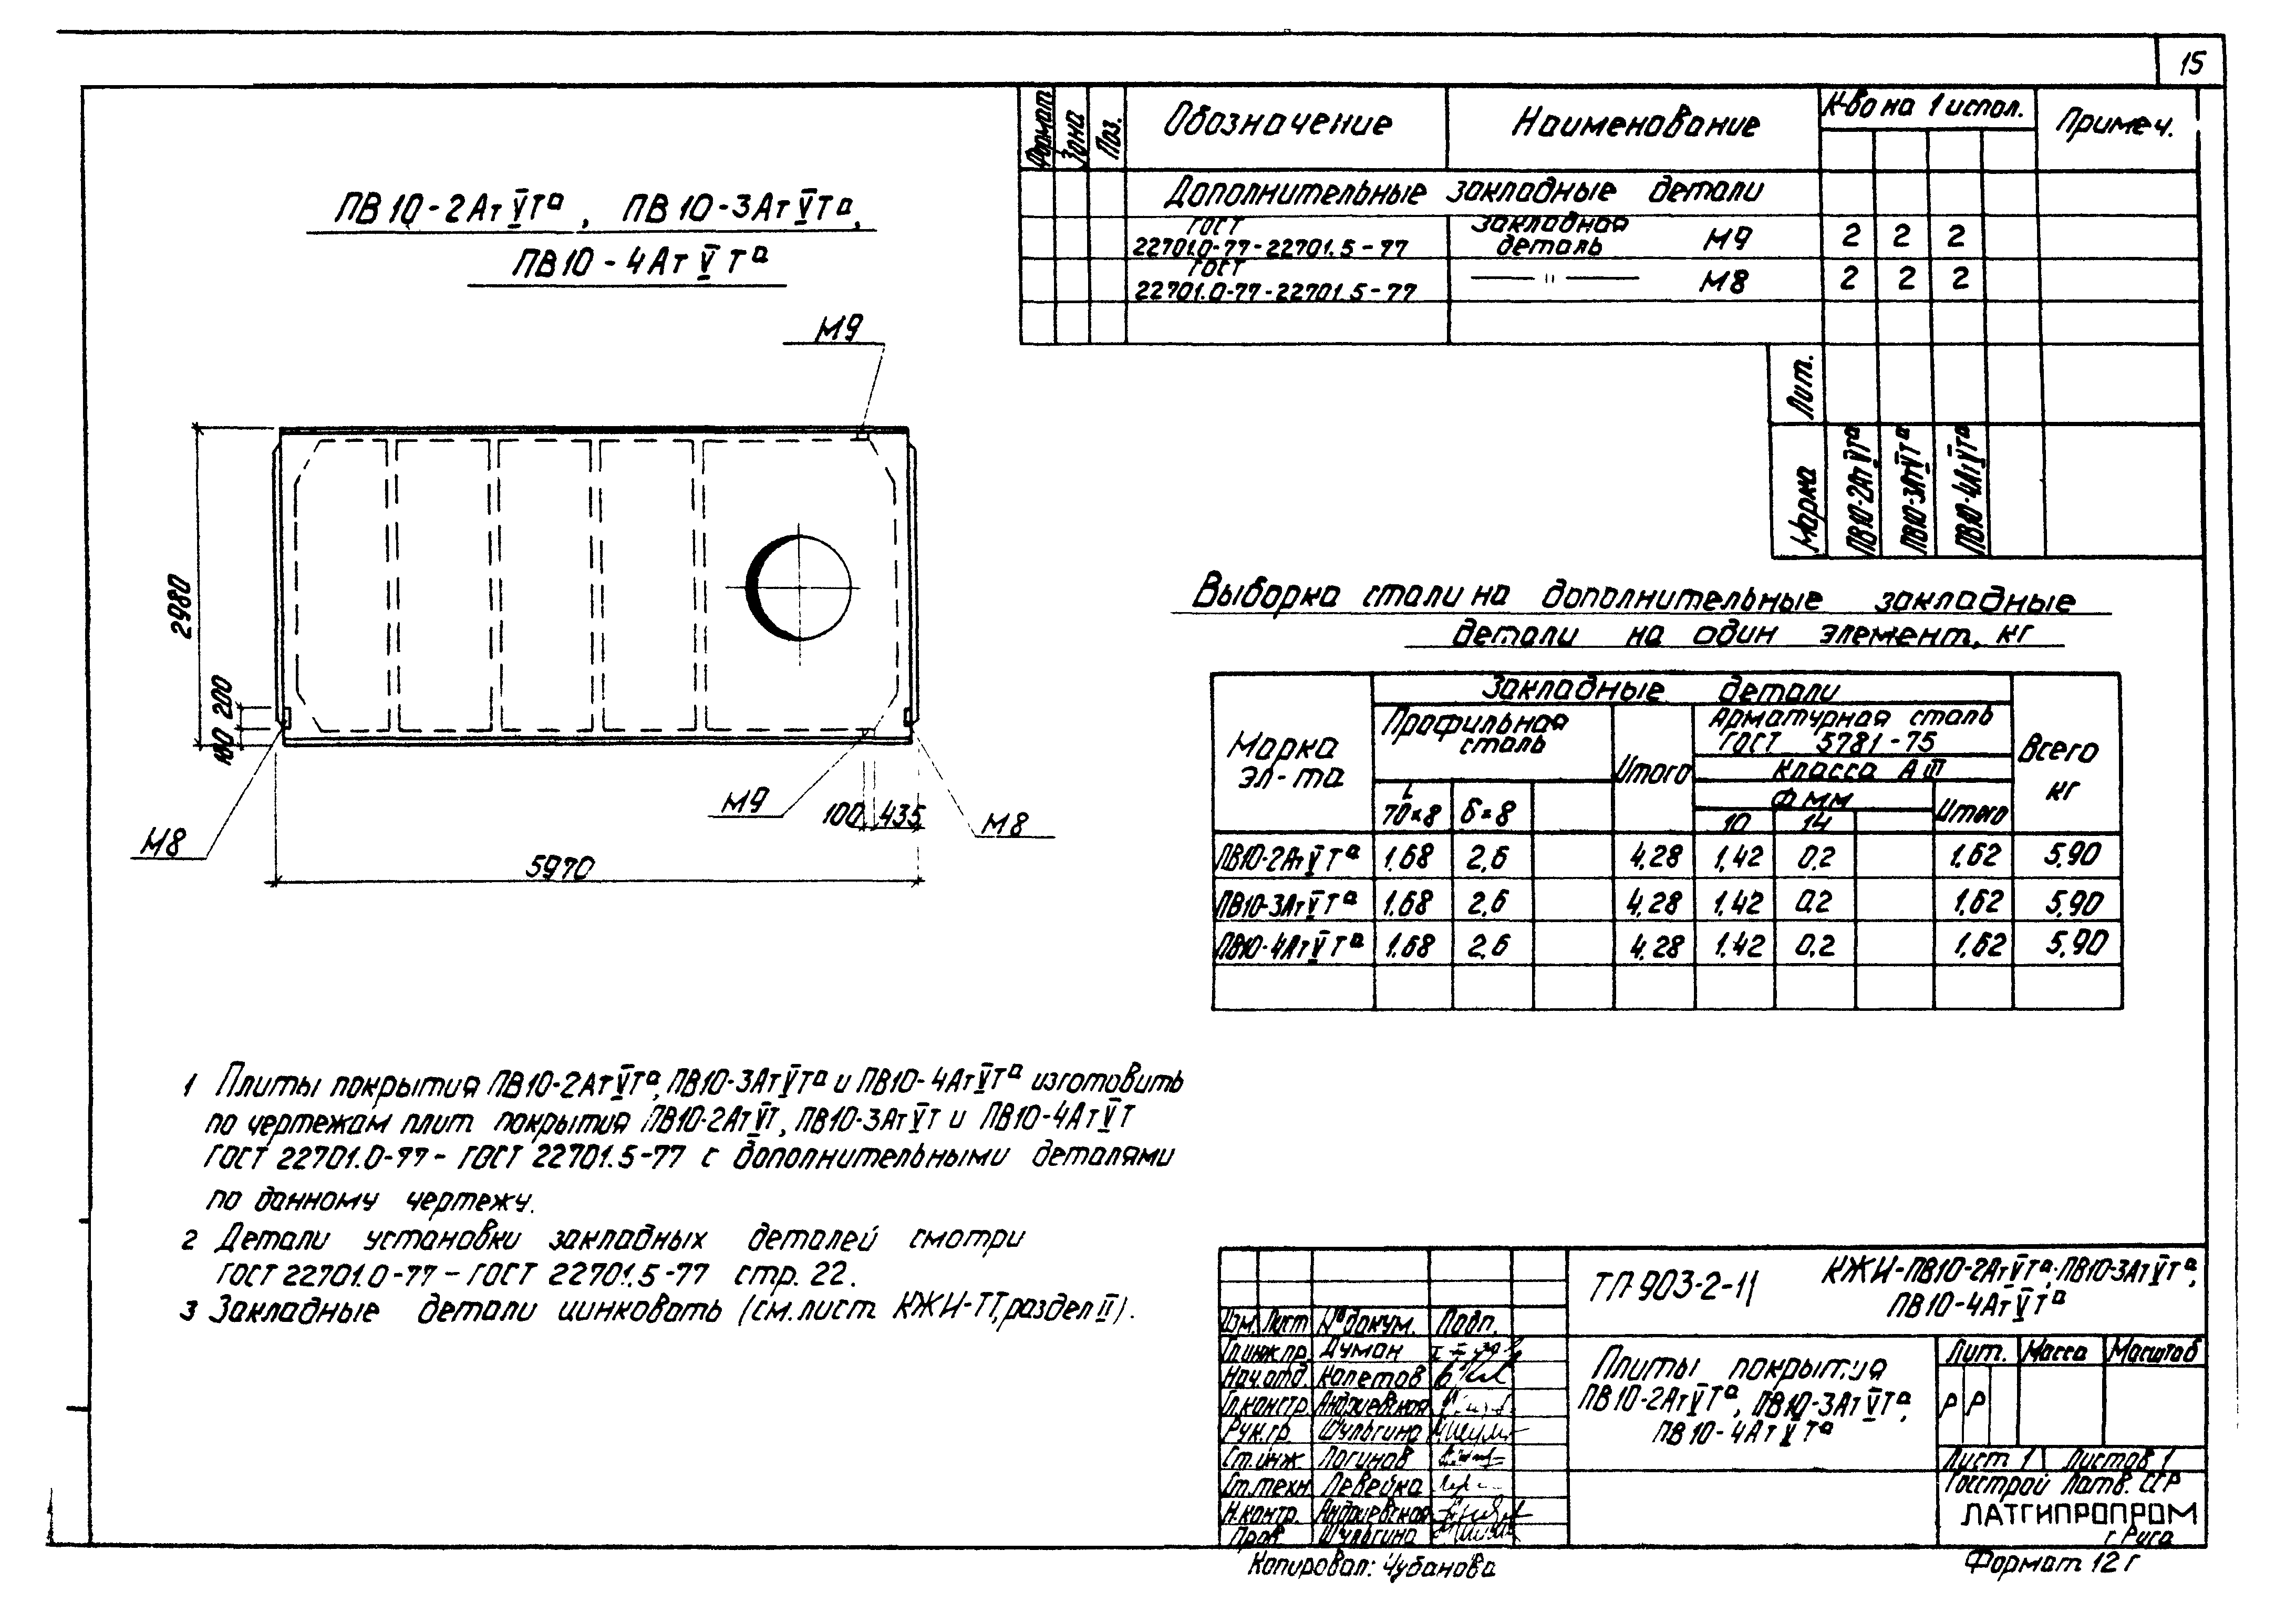 15
Формат Зона Поз. Обозначение Наименование К-во на 1 испол. Примеч.
Дополнительные закладные детали
ГОСТ 22701.0-77-22701.5-77 Закладная деталь М9 2 2 2
ГОСТ 22701.0-77-22701.5-77 — " — М8 2 2 2
Лит.
Марка ПВ10-2АтVТа ПВ10-3АтVТа ПВ10-4АтVТа
ПВ10-2АтVТа, ПВ10-3АтVТа,
ПВ10-4АтVТа
М9
2980
200
160
М9
100 435
М8
М8
5970
Выборка стали на дополнительные закладные
детали на один элемент, кг
Марка эл-та
Закладные детали
Профильная сталь
Итого
Арматурная сталь
ГОСТ 5781-75
Класса АIII
Ф мм
Всего кг
L 70×8 δ=8 10 14 Итого
ПВ10-2АтVТа 1.68 2,6 4,28 1,42 0,2 1,62 5,90
ПВ10-3АтVТа 1.68 2,6 4,28 1,42 0,2 1,62 5,90
ПВ10-4АтVТа 1.68 2,6 4,28 1,42 0,2 1,62 5,90
1 Плиты покрытия ПВ10-2АтVТа, ПВ10-3АтVТа и ПВ10-4АтVТа изготовить
по чертежам плит покрытия ПВ10-2АтVТ, ПВ10-3АтVТ и ПВ10-4АтVТ
ГОСТ 22701.0-77 - ГОСТ 22701.5-77 с дополнительными деталями
по данному чертежу.
2 Детали установки закладных деталей смотри
ГОСТ 22701.0-77 - ГОСТ 22701.5-77 стр. 22.
3 Закладные детали цинковать (см. лист КЖИ-ТТ, раздел II).
ТП 903-2-11
КЖИ-ПВ10-2АтVТа; ПВ10-3АтVТа,
ПВ10-4АтVТа
Изм. Лист № докум. Подп.
Гл.инж.пр. Думан
Нач.отд. Капетов
Гл.констр. Андриевская
Рук.гр. Шульгина
Ст.инж. Логинов
Ст.техн. Левейка
Н.контр. Андриевская
Пров. Шульгина
Плиты покрытия
ПВ10-2АтVТа, ПВ10-3АтVТа,
ПВ10-4АтVТа
Лит. Масса Масштаб
Р Р
Лист 1 Листов 1
Госстрой Латв. ССР
ЛАТГИПРОПРОМ
г. Рига
Копировал: Чубанова
Формат 12 г